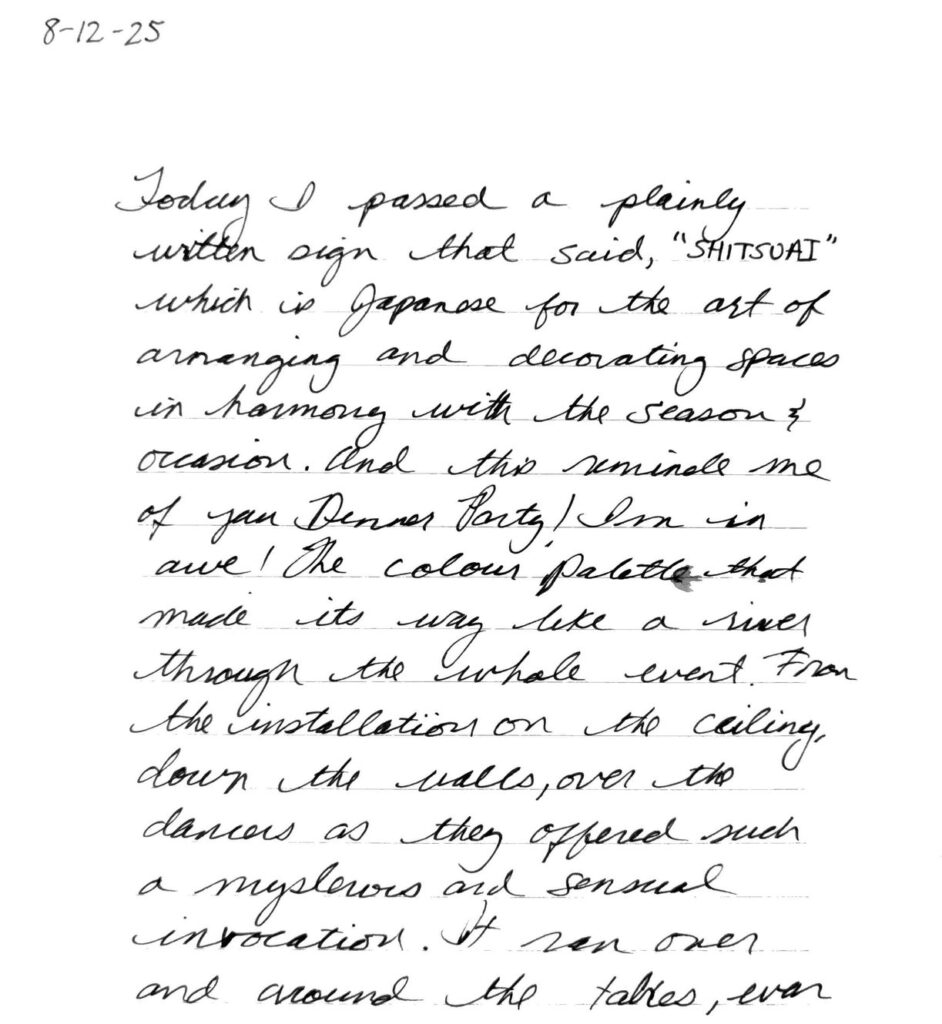 8-12-25
Today I passed a plainly
written sign that said, "SHITSUAI"
which is Japanese for the art of
arranging and decorating spaces
in harmony with the season &
occasion. And this reminds me
of your Dinner Party! I'm in
awe! The colour palette that
made its way like a river
through the whole event. From
the installation on the ceiling,
down the walls, over the
dancers as they offered such
a mysterious and sensual
invocation. It ran over
and around the tables, even